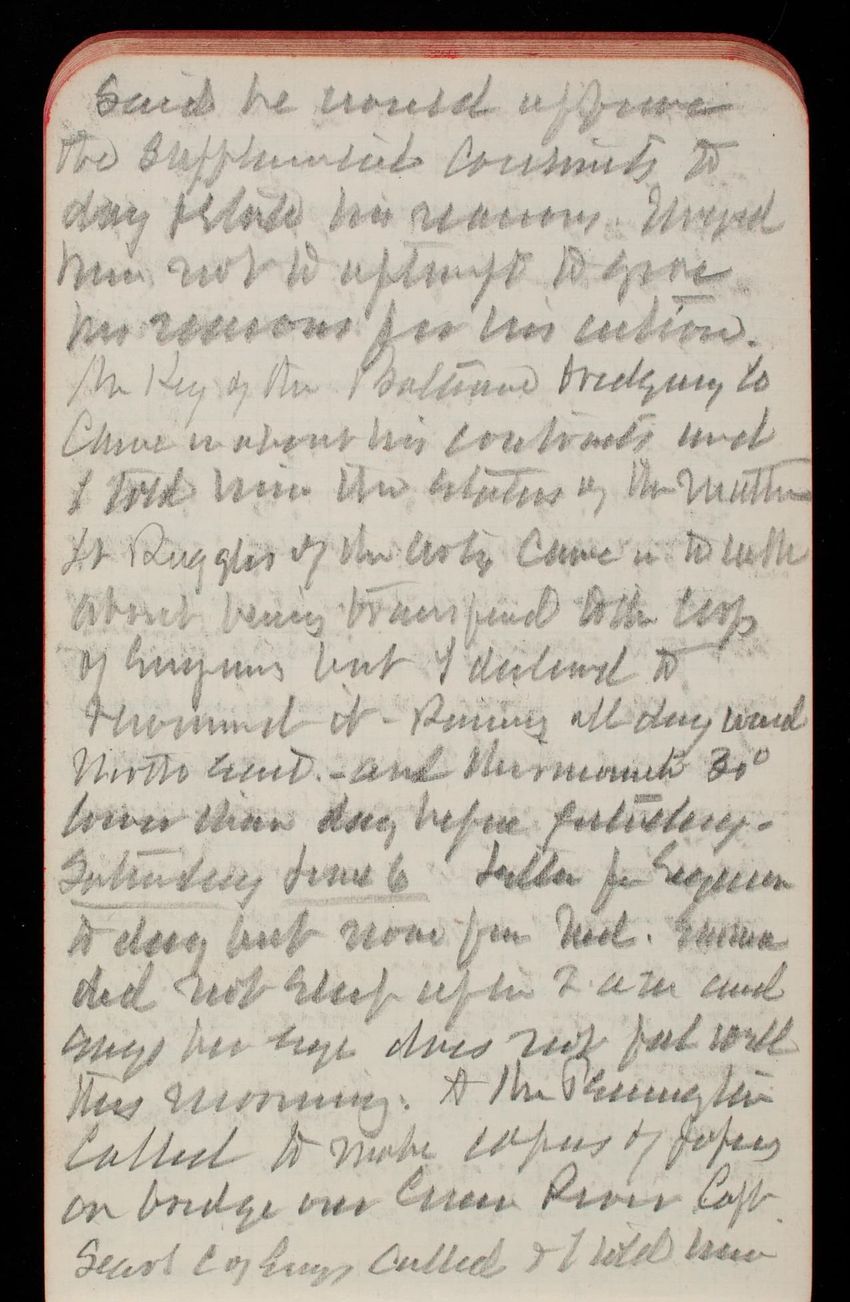 Said he would approve
the Supplemental Contracts to
day & stated his reasons. Urged
him not to attempt to give
his reasons for his action.
Mr Key of the Baltimore dredging Co
Came in about his contracts and
I told him the status of the matter
Lt Ruggles of the arty came in to talk
about being transferred to the Corps
of Engineers but I declined to
recommend it - Raining all day wind
North East. - and thermometer 30°
lower than day before yesterday -
Saturday June 6 Letter for
to day but none from Ned. Emma
did not sleep after 2 am and
says her eye does not feel well
this morning. A Mr Pennington
Called to make copies of papers
on bridge over River Capt
Sears C of Engs Called & I told him